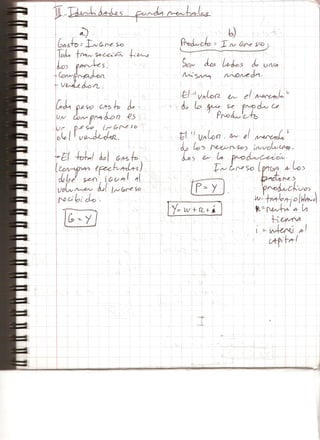 II. Identidades fundamentales
a)
Gasto = Ingreso
Toda transacción tiene
dos partes:
- Comprador
- Vendedor.
Cada peso gasto de
un comprador es
un peso ingreso
del vendedor.
- El total del gasto
(compras efectuadas)
debe ser igual al
volumen del ingreso
recibido.
G = Y
b)
Producto = Ingreso
Son dos lados de una
misma moneda.
El "valor en el mercado"
de lo que se produce
Producto
El "valor en el mercado"
de los recursos involucra-
dos en la producción
Ingreso (pago a los
factores
productivos
P = Y
Y = w + R + i
w = trabajo (labor)
R = renta a la
tierra
i = interés al
capital